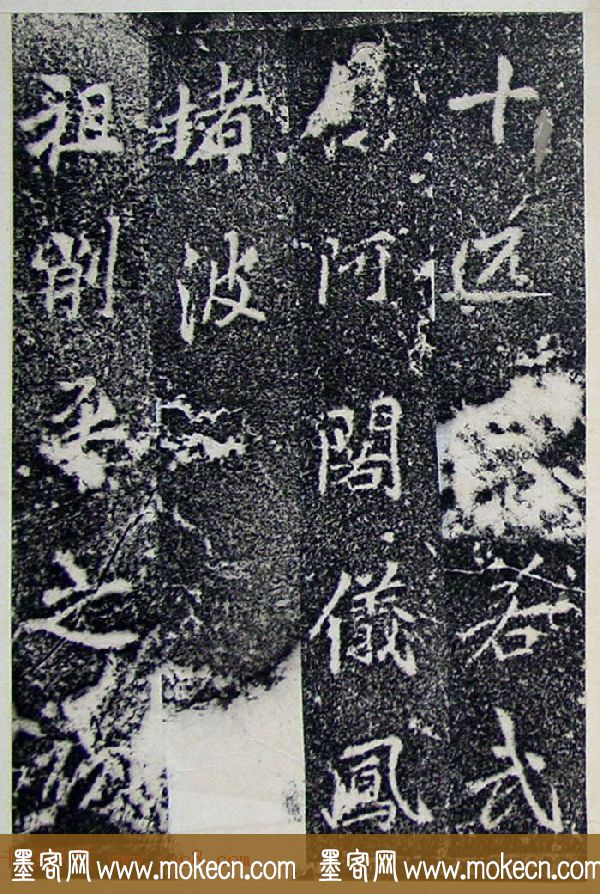 十若武
阿閣儀鳳
堵波
祖削平之
墨客网 www.mokecn.com 墨客网 www.mokecn.com